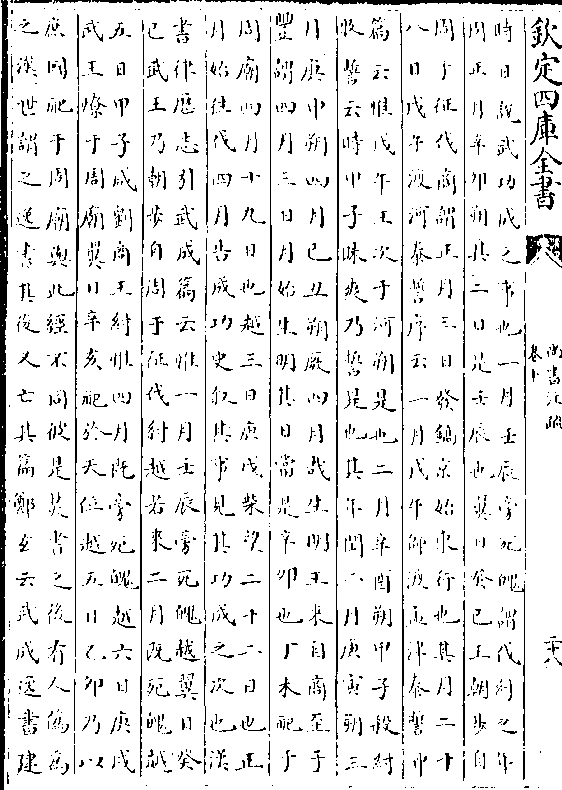 欽定四庫全書
尚書注疏
卷十
二十八
時日說武功成之事也一月壬辰旁死魄謂伐紂之年
周正月辛卯朔其二日是壬辰也翼日癸巳王朝步自
周于征伐商謂正月三日發鎬京始東行也其月二十
八日戊午渡河泰誓序云一月戊午師渡孟津泰誓中
篇云惟戊午王次于河朔是也二月辛酉朔甲子殺紂
牧誓云時甲子昧爽乃誓是也其年閏二月庚寅朔三
月庚申朔四月己丑朔厥四月哉生明王來自商至于
豐謂四月三日月始生明其日當是辛卯也丁未祀于
周廟四月十九日也越三日庚戌柴望二十二日也正
月始往伐四月告成功史叙其事見其功成之次也漢
書律歷志引武成篇云惟一月壬辰旁死魄越翼日癸
巳武王乃朝步自周于征伐紂越若來二月既死魄越
五日甲子咸劉商王紂惟四月既旁死魄越六日庚戌
武王燎于周廟翼日辛亥祀於天位越五日乙卯乃以
庶國祀于周廟與此經不同彼是焚書之後有人偽為
之漢世謂之逸書其後又亡其篇鄭玄云武成逸書建